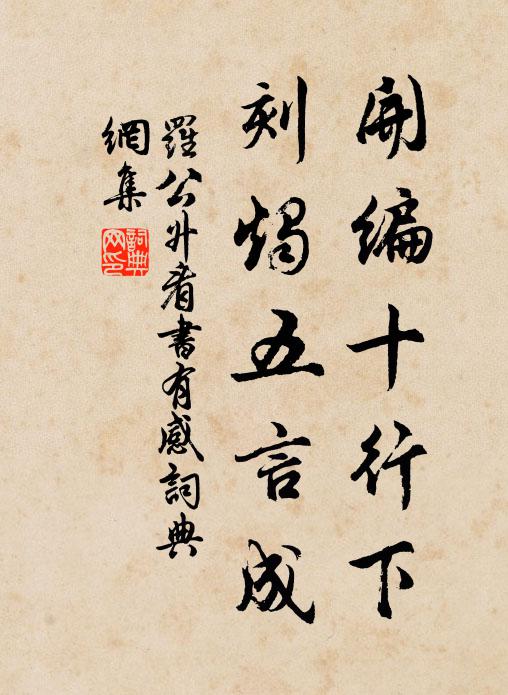 開編十行下
刻燭五言成
羅公升看書有感詞典
網集
詞典
网印